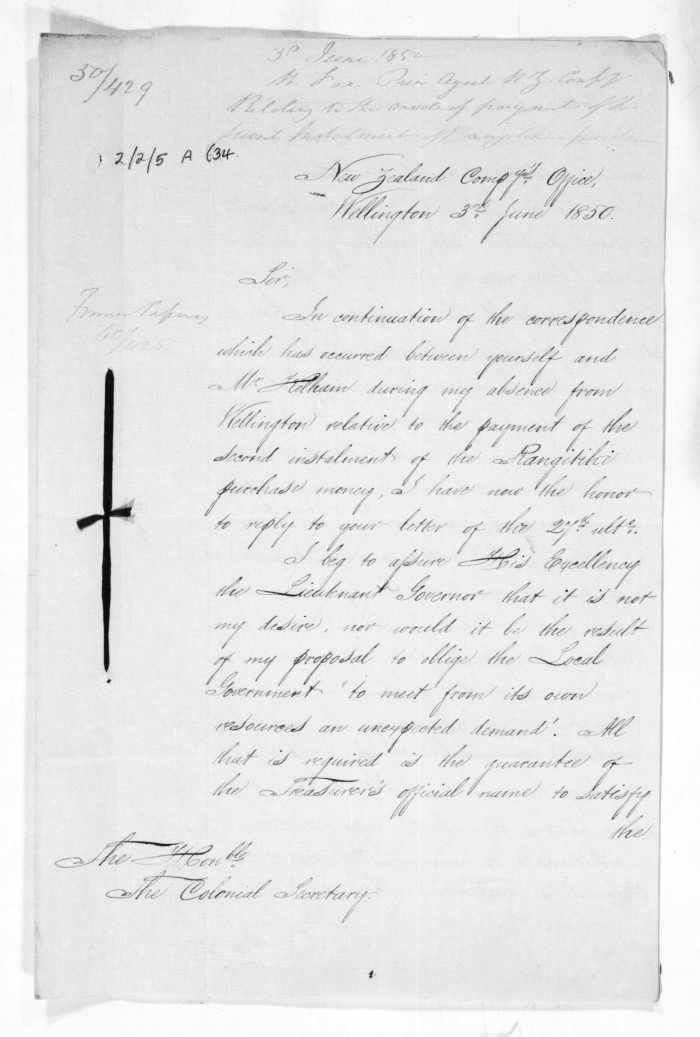 50/429
3d June 1850
W. Fox Prin Agent N.Z. Comp.y
Relating to the mode of payment of the
second Instalment of Rangitiki purchase
2/2/5 A (34.
New Zealand Comp'y's. Office,
Wellington 3rd June 1850.
Sir,
Former Papers
In continuation of the correspondence
which has occurred between yourself and
Mr. Kelham during my absence from
Wellington relative to the payment of the
second instalment of the Rangitiki
purchase money, I have now the honor
to reply to your letter of the 27th. ulto.
I beg to assure His Excellency
the Lieutenant Governor that it is not
my desire, nor would it be the result
of my proposal to oblige the Local
Government 'to meet from its own
resources an unexpected demand'. All
that is required is the guarantee of
the Treasurer's official name to satisfy
the
The Honble.
The Colonial Secretary.